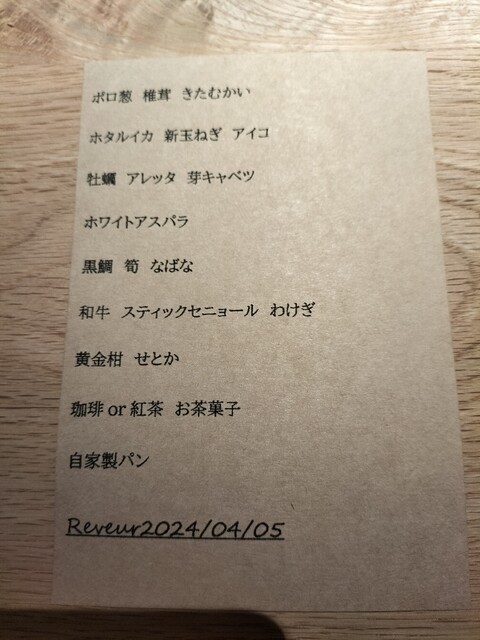 ポロ葱 椎茸 きたむかい
ホタルイカ 新玉ねぎ アイコ
牡蠣 アレッタ 芽キャベツ
ホワイトアスパラ
黒鯛 筍 なばな
和牛 スティックセニョール わけぎ
黄金柑 せとか
珈琲 or 紅茶 お茶菓子
自家製パン
Reveur2024/04/05